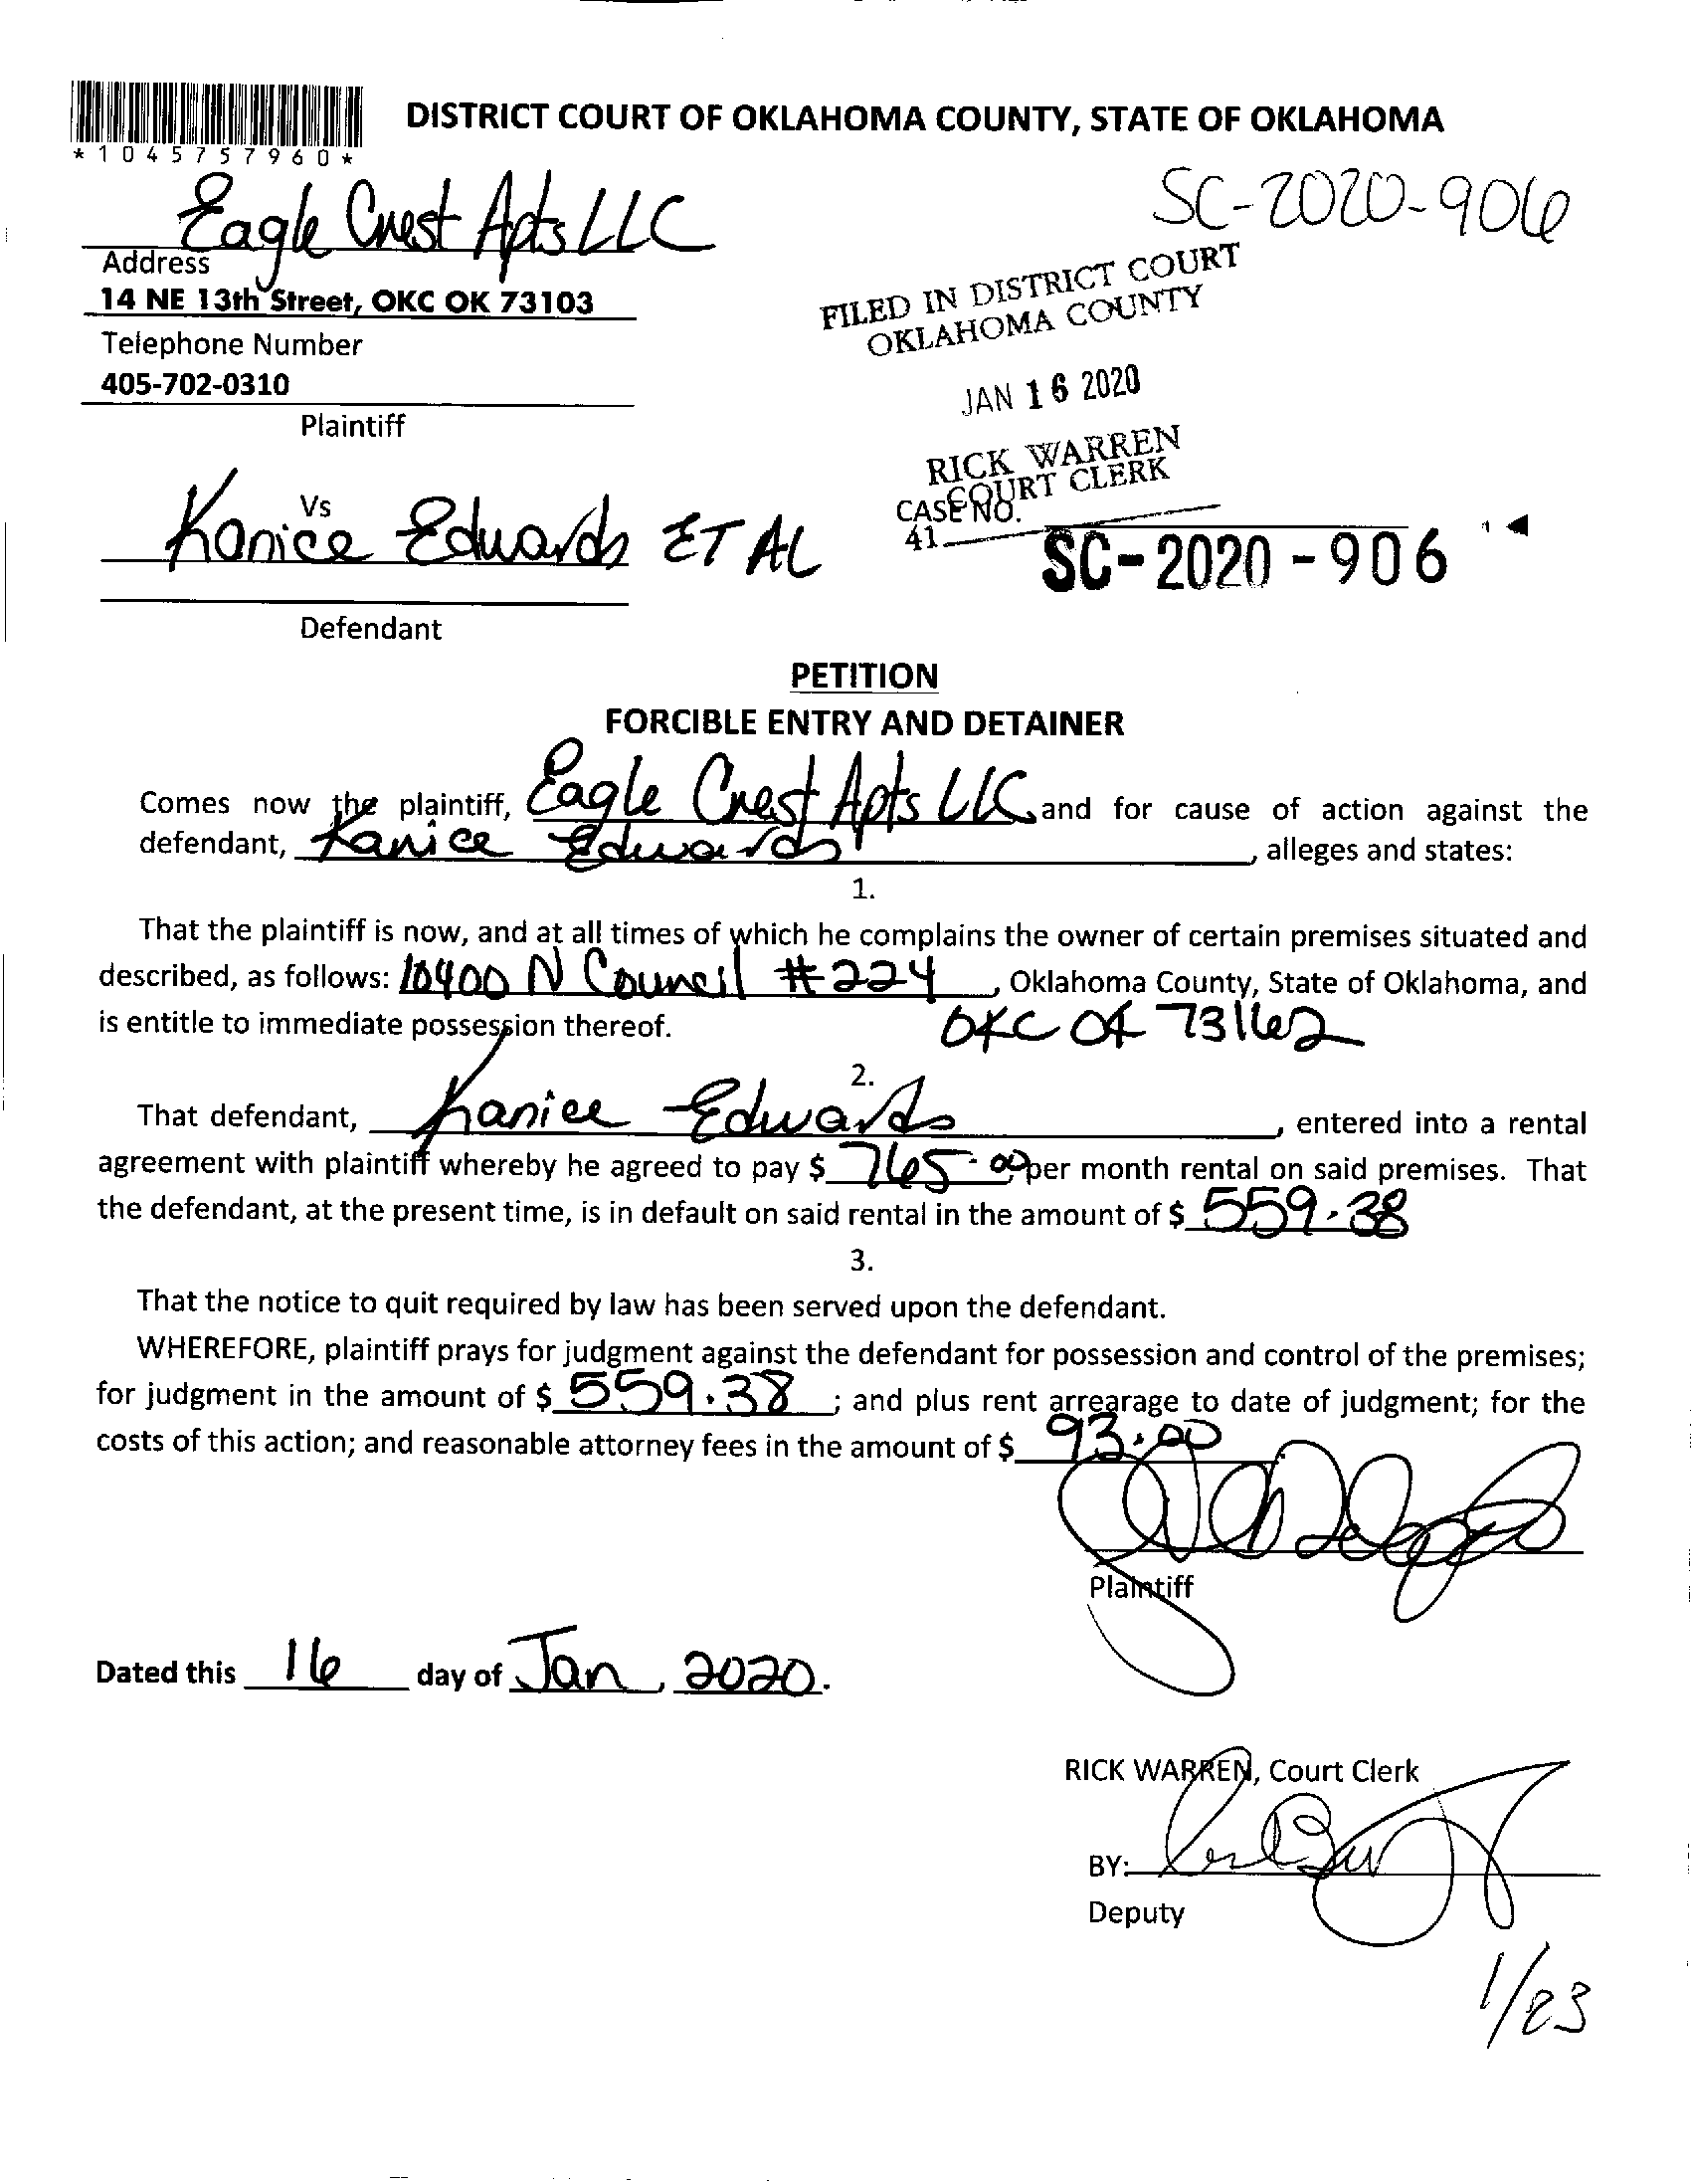 DISTRICT COURT OF OKLAHOMA COUNTY, STATE OF OKLAHOMA
*1045757960*
SC-2020-906
Eagle Crest Apts LLC
Address
14 NE 13th Street, OKC OK 73103
Telephone Number
405-702-0310
Plaintiff
FILED IN DISTRICT COURT
OKLAHOMA COUNTY
JAN 16 2020
RICK WARREN
COURT CLERK
Vs
Kanice Edwards ET AL
CASE NO.
41
SC-2020-906
Defendant
PETITION
FORCIBLE ENTRY AND DETAINER
Comes now the plaintiff, Eagle Crest Apts LLC and for cause of action against the
defendant, Kanice Edwards, alleges and states:
1.
That the plaintiff is now, and at all times of which he complains the owner of certain premises situated and
described, as follows: 10400 N Council #224, Oklahoma County, State of Oklahoma, and
is entitle to immediate possession thereof. OKC OK 73162
2.
That defendant, Kanice Edwards, entered into a rental
agreement with plaintiff whereby he agreed to pay $ 765.00 per month rental on said premises. That
the defendant, at the present time, is in default on said rental in the amount of $ 559.38
3.
That the notice to quit required by law has been served upon the defendant.
WHEREFORE, plaintiff prays for judgment against the defendant for possession and control of the premises;
for judgment in the amount of $ 559.38; and plus rent arrearage to date of judgment; for the
costs of this action; and reasonable attorney fees in the amount of $ 93.00
Plaintiff
Dated this 16 day of Jan, 2020.
RICK WARREN, Court Clerk
BY:
Deputy
1/23